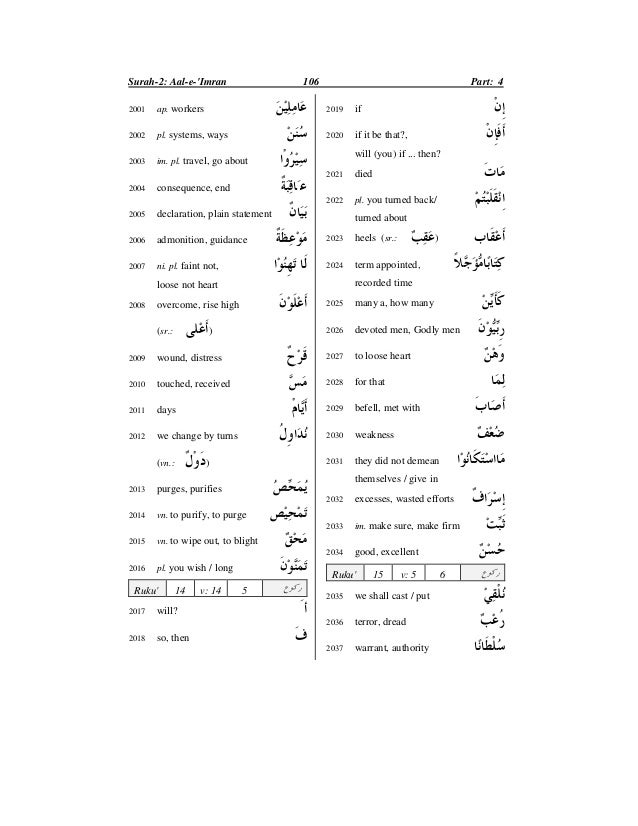 Surah-2: Aal-e-'Imran 106 Part: 4
2001 ap. workers عَامِلِيْنَ
2002 pl. systems, ways سُنَنْ
2003 im. pl. travel, go about سِيْرُوْا
2004 consequence, end عَاقِبَةٌ
2005 declaration, plain statement بَيَانٌ
2006 admonition, guidance مَوْعِظَةٌ
2007 ni. pl. faint not, لَا تَهِنُوْا
loose not heart
2008 overcome, rise high أَعْلَوْنَ
(sr.: أَعْلَى)
2009 wound, distress قَرْحٌ
2010 touched, received مَسَّ
2011 days أَيَّامْ
2012 we change by turns نُدَاوِلُ
(vn.: دَوْلٌ)
2013 purges, purifies يُمَحِّصُ
2014 vn. to purify, to purge تَمْحِيْصْ
2015 vn. to wipe out, to blight مَحْقٌ
2016 pl. you wish / long تَمَنَّوْنَ
Ruku' 14 v: 14 5 ركوع
2017 will? أَ
2018 so, then فَ
2019 if إِنْ
2020 if it be that?, أَفَإِنْ
will (you) if ... then?
2021 died مَاتَ
2022 pl. you turned back/ اِنْقَلَبْتُمْ
turned about
2023 heels (sr.: عَقِبٌ) أَعْقَابَ
2024 term appointed, كِتَابًامُّؤَجَّلاً
recorded time
2025 many a, how many كَأَيِّنْ
2026 devoted men, Godly men رِبِّيُّوْنَ
2027 to loose heart وَهْنٌ
2028 for that لِمَا
2029 befell, met with أَصَابَ
2030 weakness ضُعْفٌ
2031 they did not demean مَااسْتَكَانُوْا
themselves / give in
2032 excesses, wasted efforts إِسْرَافٌ
2033 im. make sure, make firm ثَبِّتْ
2034 good, excellent حُسْنٌ
Ruku' 15 v: 5 6 ركوع
2035 we shall cast / put نُلْقِيْ
2036 terror, dread رُعْبٌ
2037 warrant, authority سُلْطَانًا